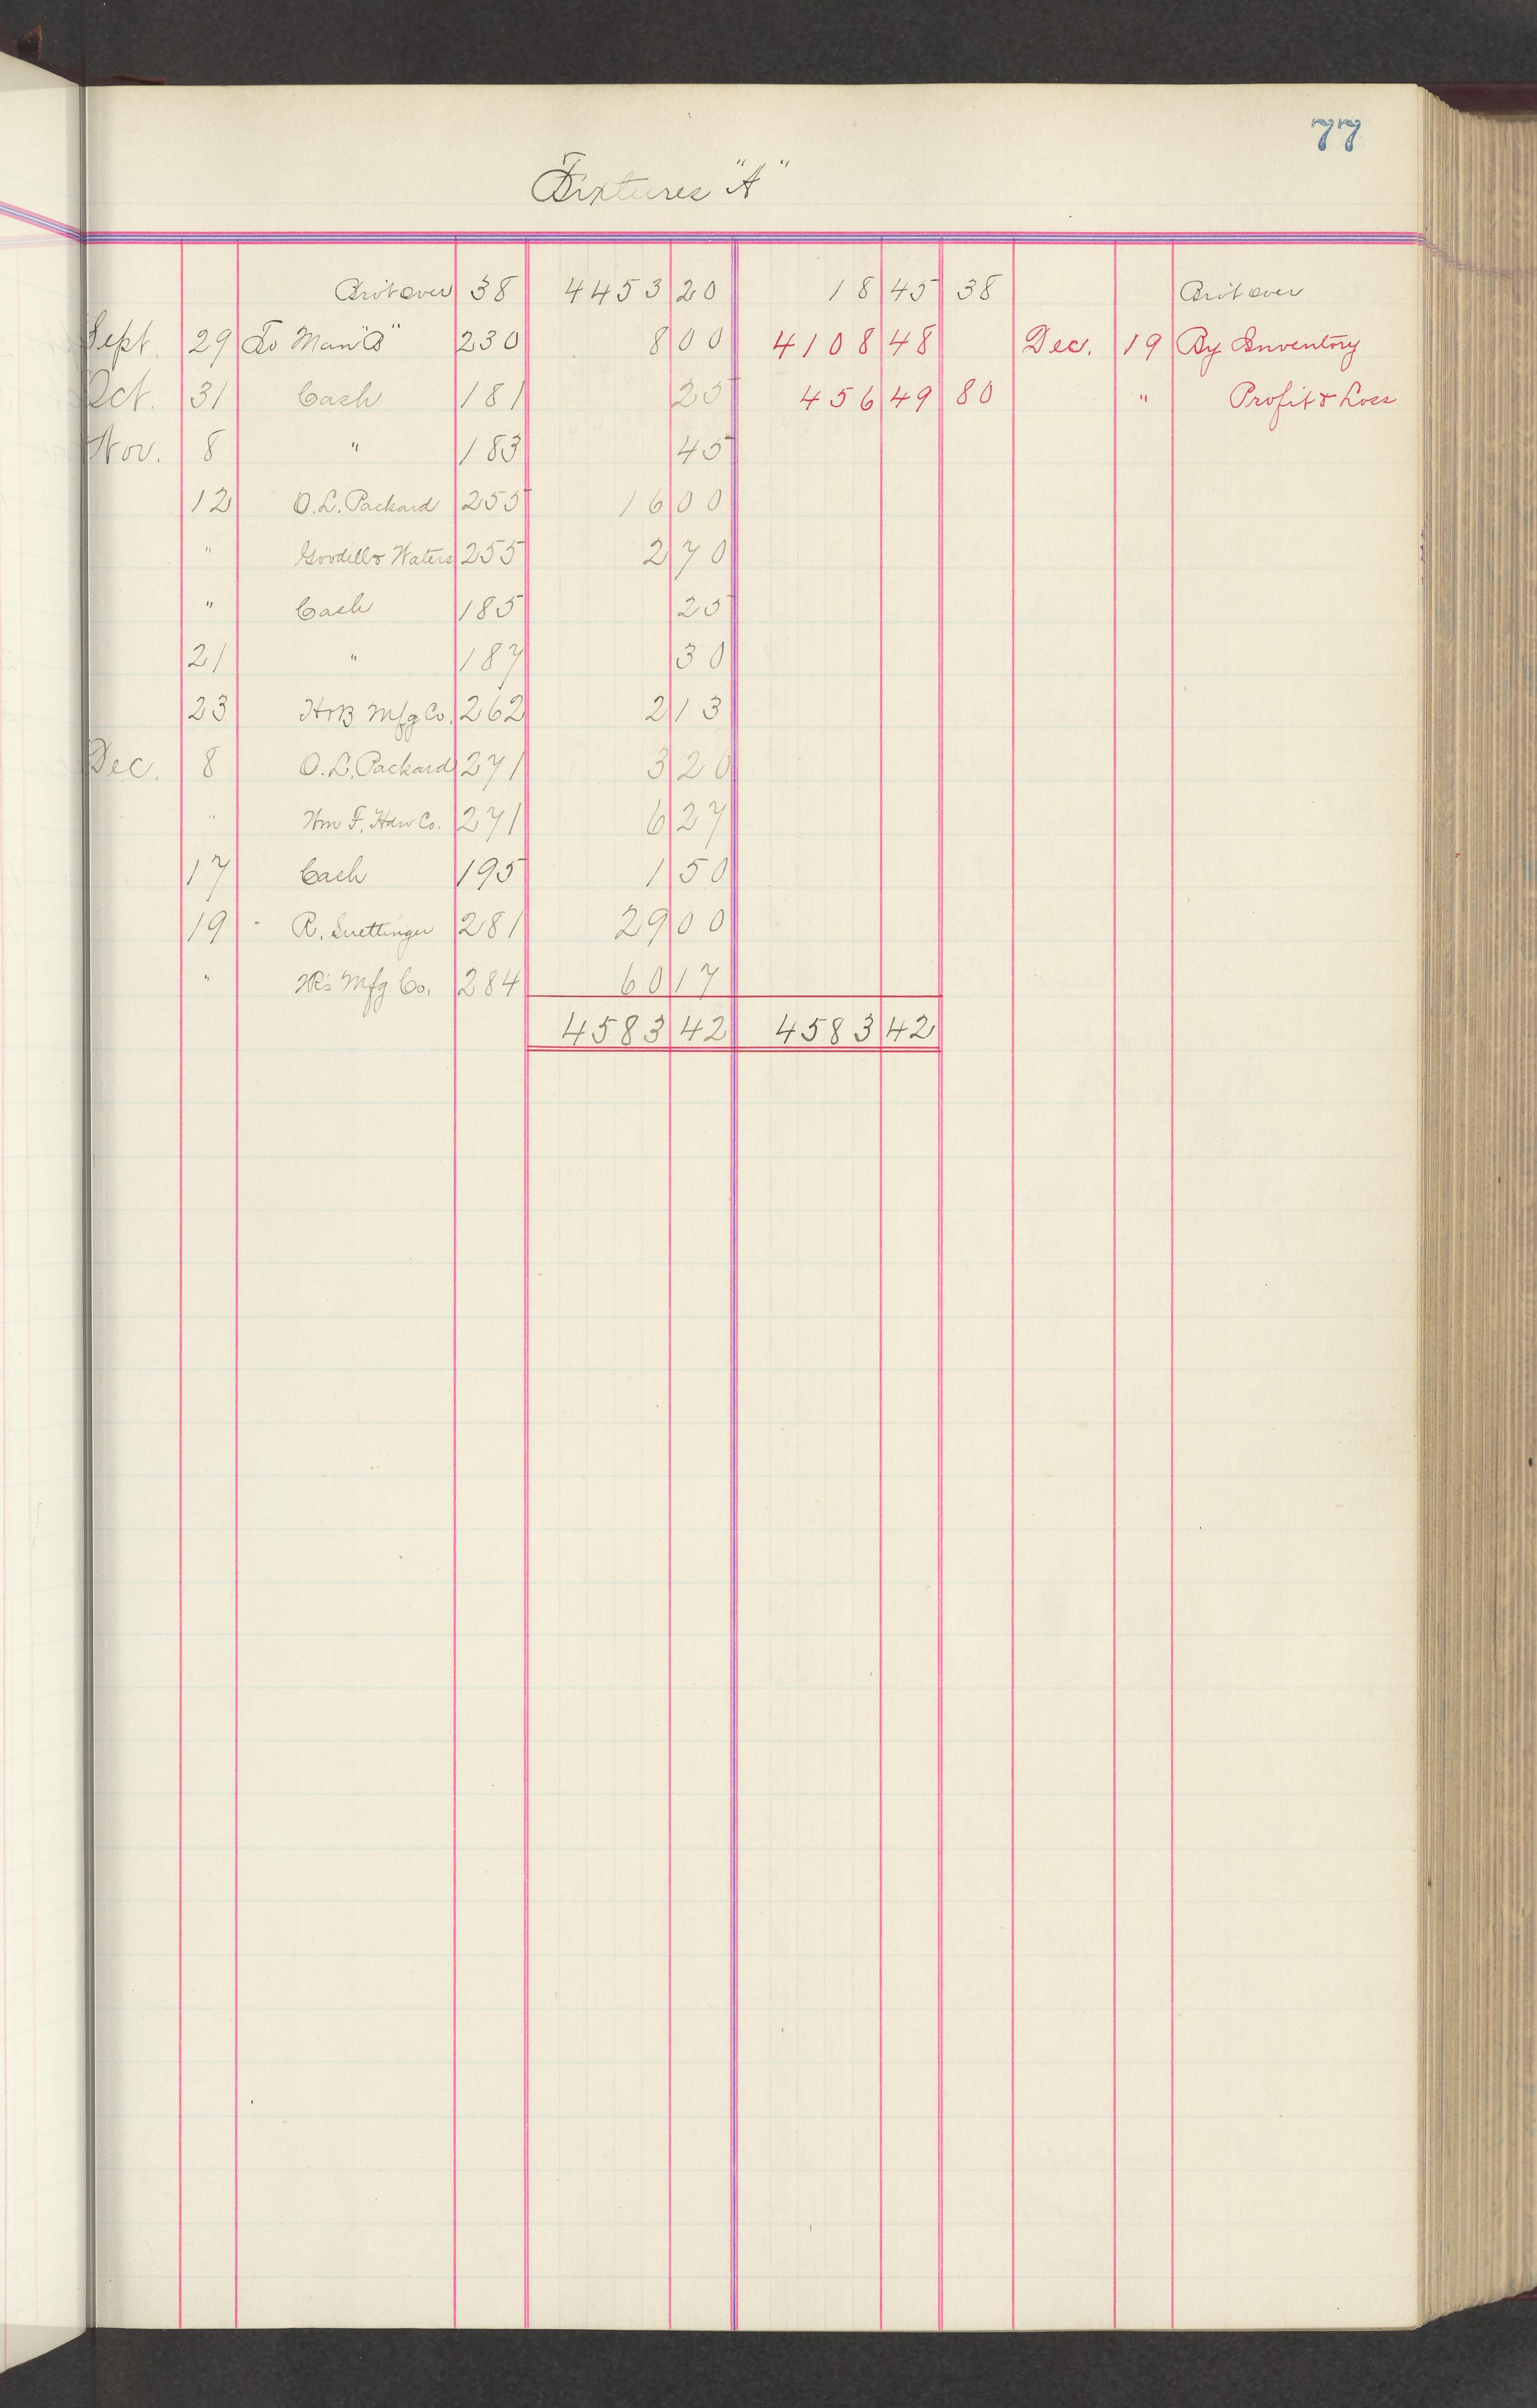 77
Fixtures "A"
Bro't over 38 4453 20 18 45 38 Bro't over
Sept. 29 To Man "B" 230 8 00 4108 48 Dec. 19 By Inventory
Oct. 31 Cash 181 25 456 49 80 " Profit & Loss
Nov. 8 " 183 45
12 O.L. Packard 255 16 00
" Goodell & Waters 255 2 70
" Cash 185 25
21 " 187 30
23 Mfg Co. 262 2 13
Dec. 8 O.L. Packard 271 3 20
" Wm F. Hdw Co. 271 6 27
17 Cash 195 1 50
19 R. Suettinger 281 29 00
" Mfg Co. 284 60 17
4583 42 4583 42